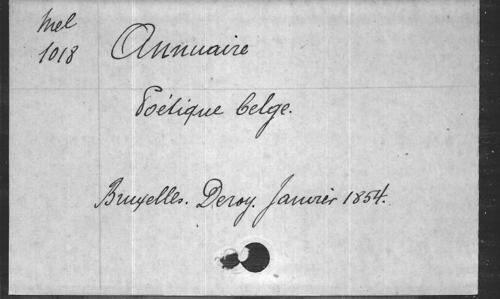 Mel
1018
Annuaire
Poétique belge.
Bruxelles. Deroy. Janvier 1854.